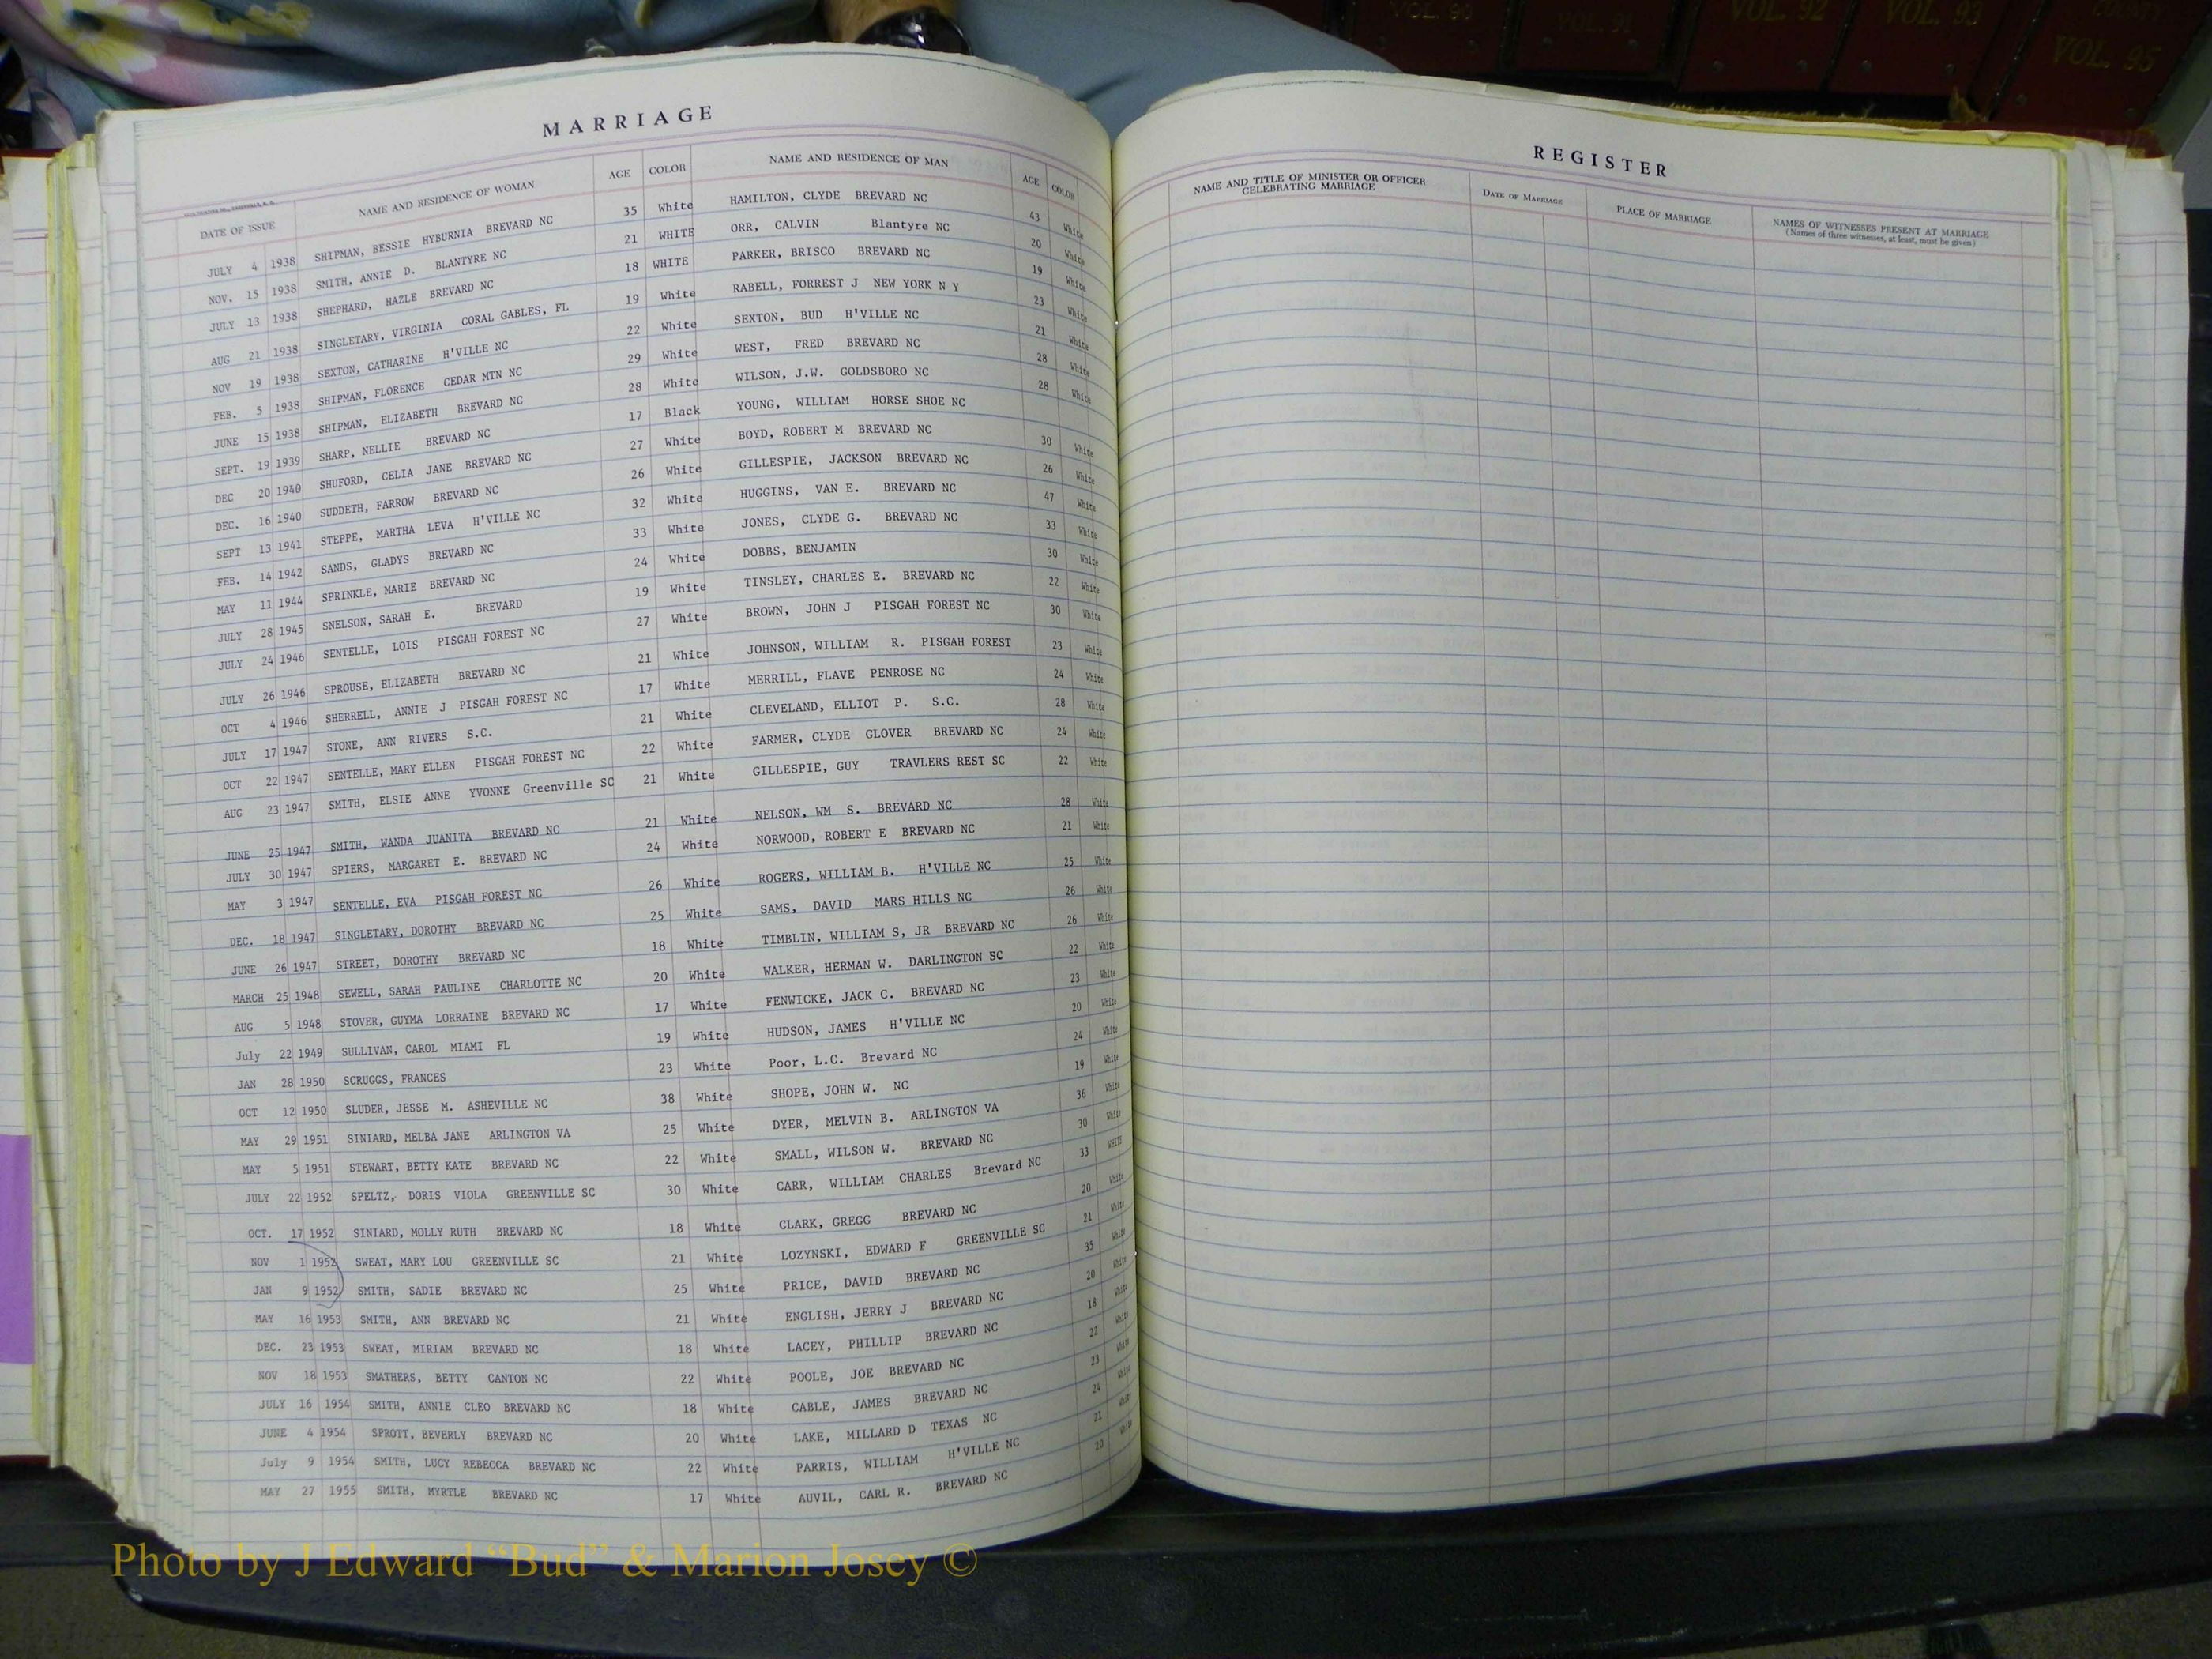 VOL. 90 VOL. 91 VOL. 92 VOL. 93 COUNTY VOL. 95
MARRIAGE
DATE OF ISSUE NAME AND RESIDENCE OF WOMAN AGE COLOR NAME AND RESIDENCE OF MAN AGE COLOR
JULY 4 1938 SHIPMAN, BESSIE HYBURNIA BREVARD NC 35 White HAMILTON, CLYDE BREVARD NC 43 White
NOV. 15 1938 SMITH, ANNIE D. BLANTYRE NC 21 WHITE ORR, CALVIN Blantyre NC 20 White
JULY 13 1938 SHEPHARD, HAZLE BREVARD NC 18 WHITE PARKER, BRISCO BREVARD NC 19 White
AUG 21 1938 SINGLETARY, VIRGINIA CORAL GABLES, FL 19 White RABELL, FORREST J NEW YORK N Y 23 White
NOV 19 1938 SEXTON, CATHARINE H'VILLE NC 22 White SEXTON, BUD H'VILLE NC 21 White
FEB. 5 1938 SHIPMAN, FLORENCE CEDAR MTN NC 29 White WEST, FRED BREVARD NC 28 White
JUNE 15 1938 SHIPMAN, ELIZABETH BREVARD NC 28 White WILSON, J.W. GOLDSBORO NC 28 White
SEPT. 19 1939 SHARP, NELLIE BREVARD NC 17 Black YOUNG, WILLIAM HORSE SHOE NC
DEC 20 1940 SHUFORD, CELIA JANE BREVARD NC 27 White BOYD, ROBERT M BREVARD NC 30 White
DEC. 16 1940 SUDDETH, FARROW BREVARD NC 26 White GILLESPIE, JACKSON BREVARD NC 26 White
SEPT 13 1941 STEPPE, MARTHA LEVA H'VILLE NC 32 White HUGGINS, VAN E. BREVARD NC 47 White
FEB. 14 1942 SANDS, GLADYS BREVARD NC 33 White JONES, CLYDE G. BREVARD NC 33 White
MAY 11 1944 SPRINKLE, MARIE BREVARD NC 24 White DOBBS, BENJAMIN 30 White
JULY 28 1945 SNELSON, SARAH E. BREVARD 19 White TINSLEY, CHARLES E. BREVARD NC 22 White
JULY 24 1946 SENTELLE, LOIS PISGAH FOREST NC 27 White BROWN, JOHN J PISGAH FOREST NC 30 White
JULY 26 1946 SPROUSE, ELIZABETH BREVARD NC 21 White JOHNSON, WILLIAM R. PISGAH FOREST 23 White
OCT 4 1946 SHERRELL, ANNIE J PISGAH FOREST NC 17 White MERRILL, FLAVE PENROSE NC 24 White
JULY 17 1947 STONE, ANN RIVERS S.C. 21 White CLEVELAND, ELLIOT P. S.C. 28 White
OCT 22 1947 SENTELLE, MARY ELLEN PISGAH FOREST NC 22 White FARMER, CLYDE GLOVER BREVARD NC 24 White
AUG 23 1947 SMITH, ELSIE ANNE YVONNE Greenville SC 21 White GILLESPIE, GUY TRAVLERS REST SC 22 White
JUNE 25 1947 SMITH, WANDA JUANITA BREVARD NC 21 White NELSON, WM S. BREVARD NC 28 White
JULY 30 1947 SPIERS, MARGARET E. BREVARD NC 24 White NORWOOD, ROBERT E BREVARD NC 21 White
MAY 3 1947 SENTELLE, EVA PISGAH FOREST NC 26 White ROGERS, WILLIAM B. H'VILLE NC 25 White
DEC. 18 1947 SINGLETARY, DOROTHY BREVARD NC 25 White SAMS, DAVID MARS HILLS NC 26 White
JUNE 26 1947 STREET, DOROTHY BREVARD NC 18 White TIMBLIN, WILLIAM S, JR BREVARD NC 26 White
MARCH 25 1948 SEWELL, SARAH PAULINE CHARLOTTE NC 20 White WALKER, HERMAN W. DARLINGTON SC 22 White
AUG 5 1948 STOVER, GUYMA LORRAINE BREVARD NC 17 White FENWICKE, JACK C. BREVARD NC 23 White
July 22 1949 SULLIVAN, CAROL MIAMI FL 19 White HUDSON, JAMES H'VILLE NC 20 White
JAN 28 1950 SCRUGGS, FRANCES 23 White Poor, L.C. Brevard NC 24 White
OCT 12 1950 SLUDER, JESSE M. ASHEVILLE NC 38 White SHOPE, JOHN W. NC 19 White
MAY 29 1951 SINIARD, MELBA JANE ARLINGTON VA 25 White DYER, MELVIN B. ARLINGTON VA 36 White
MAY 5 1951 STEWART, BETTY KATE BREVARD NC 22 White SMALL, WILSON W. BREVARD NC 30 White
JULY 22 1952 SPELTZ, DORIS VIOLA GREENVILLE SC 30 White CARR, WILLIAM CHARLES Brevard NC 33 WHITE
OCT. 17 1952 SINIARD, MOLLY RUTH BREVARD NC 18 White CLARK, GREGG BREVARD NC 20 White
NOV 1 1952 SWEAT, MARY LOU GREENVILLE SC 21 White LOZYNSKI, EDWARD F GREENVILLE SC 21 White
JAN 9 1952 SMITH, SADIE BREVARD NC 25 White PRICE, DAVID BREVARD NC 35 White
MAY 16 1953 SMITH, ANN BREVARD NC 21 White ENGLISH, JERRY J BREVARD NC 20 White
DEC. 23 1953 SWEAT, MIRIAM BREVARD NC 18 White LACEY, PHILLIP BREVARD NC 18 White
NOV 18 1953 SMATHERS, BETTY CANTON NC 22 White POOLE, JOE BREVARD NC 22 White
JULY 16 1954 SMITH, ANNIE CLEO BREVARD NC 18 White CABLE, JAMES BREVARD NC 23 White
JUNE 4 1954 SPROTT, BEVERLY BREVARD NC 20 White LAKE, MILLARD D TEXAS NC 24 White
July 9 1954 SMITH, LUCY REBECCA BREVARD NC 22 White PARRIS, WILLIAM H'VILLE NC 21 White
MAY 27 1955 SMITH, MYRTLE BREVARD NC 17 White AUVIL, CARL R. BREVARD NC 20 White
REGISTER
NAME AND TITLE OF MINISTER OR OFFICER CELEBRATING MARRIAGE DATE OF MARRIAGE PLACE OF MARRIAGE NAMES OF WITNESSES PRESENT AT MARRIAGE
(Names of three witnesses, at least, must be given)
Photo by J Edward “Bud” & Marion Josey ©